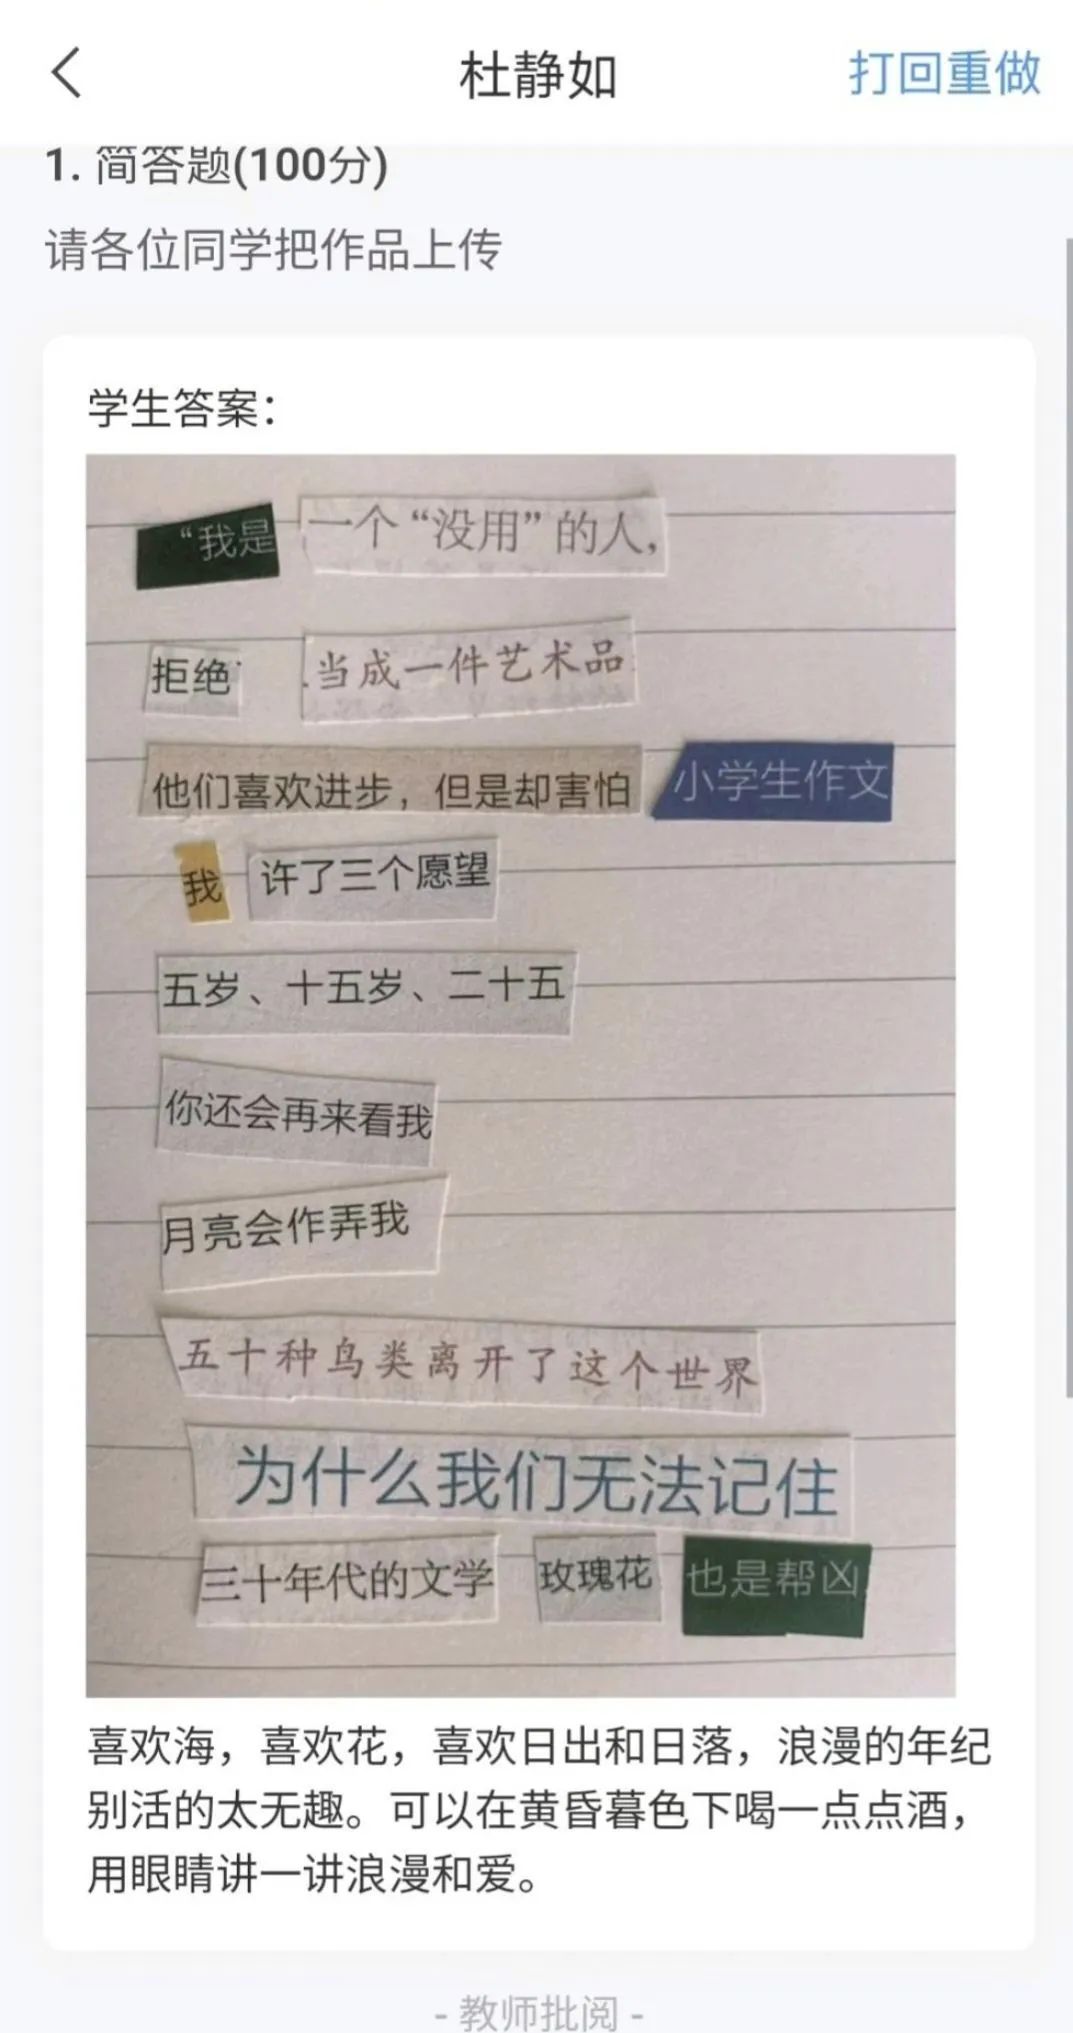 杜静如 打回重做
1. 简答题(100分)
请各位同学把作品上传
学生答案：
“我是 一个“没用”的人，
拒绝 当成一件艺术品
他们喜欢进步，但是却害怕 小学生作文
我 许了三个愿望
五岁、十五岁、二十五
你还会再来看我
月亮会作弄我
五十种鸟类离开了这个世界
为什么我们无法记住
三十年代的文学 玫瑰花 也是帮凶
喜欢海，喜欢花，喜欢日出和日落，浪漫的年纪
别活的太无趣。可以在黄昏暮色下喝一点点酒，
用眼睛讲一讲浪漫和爱。
- 教师批阅 -